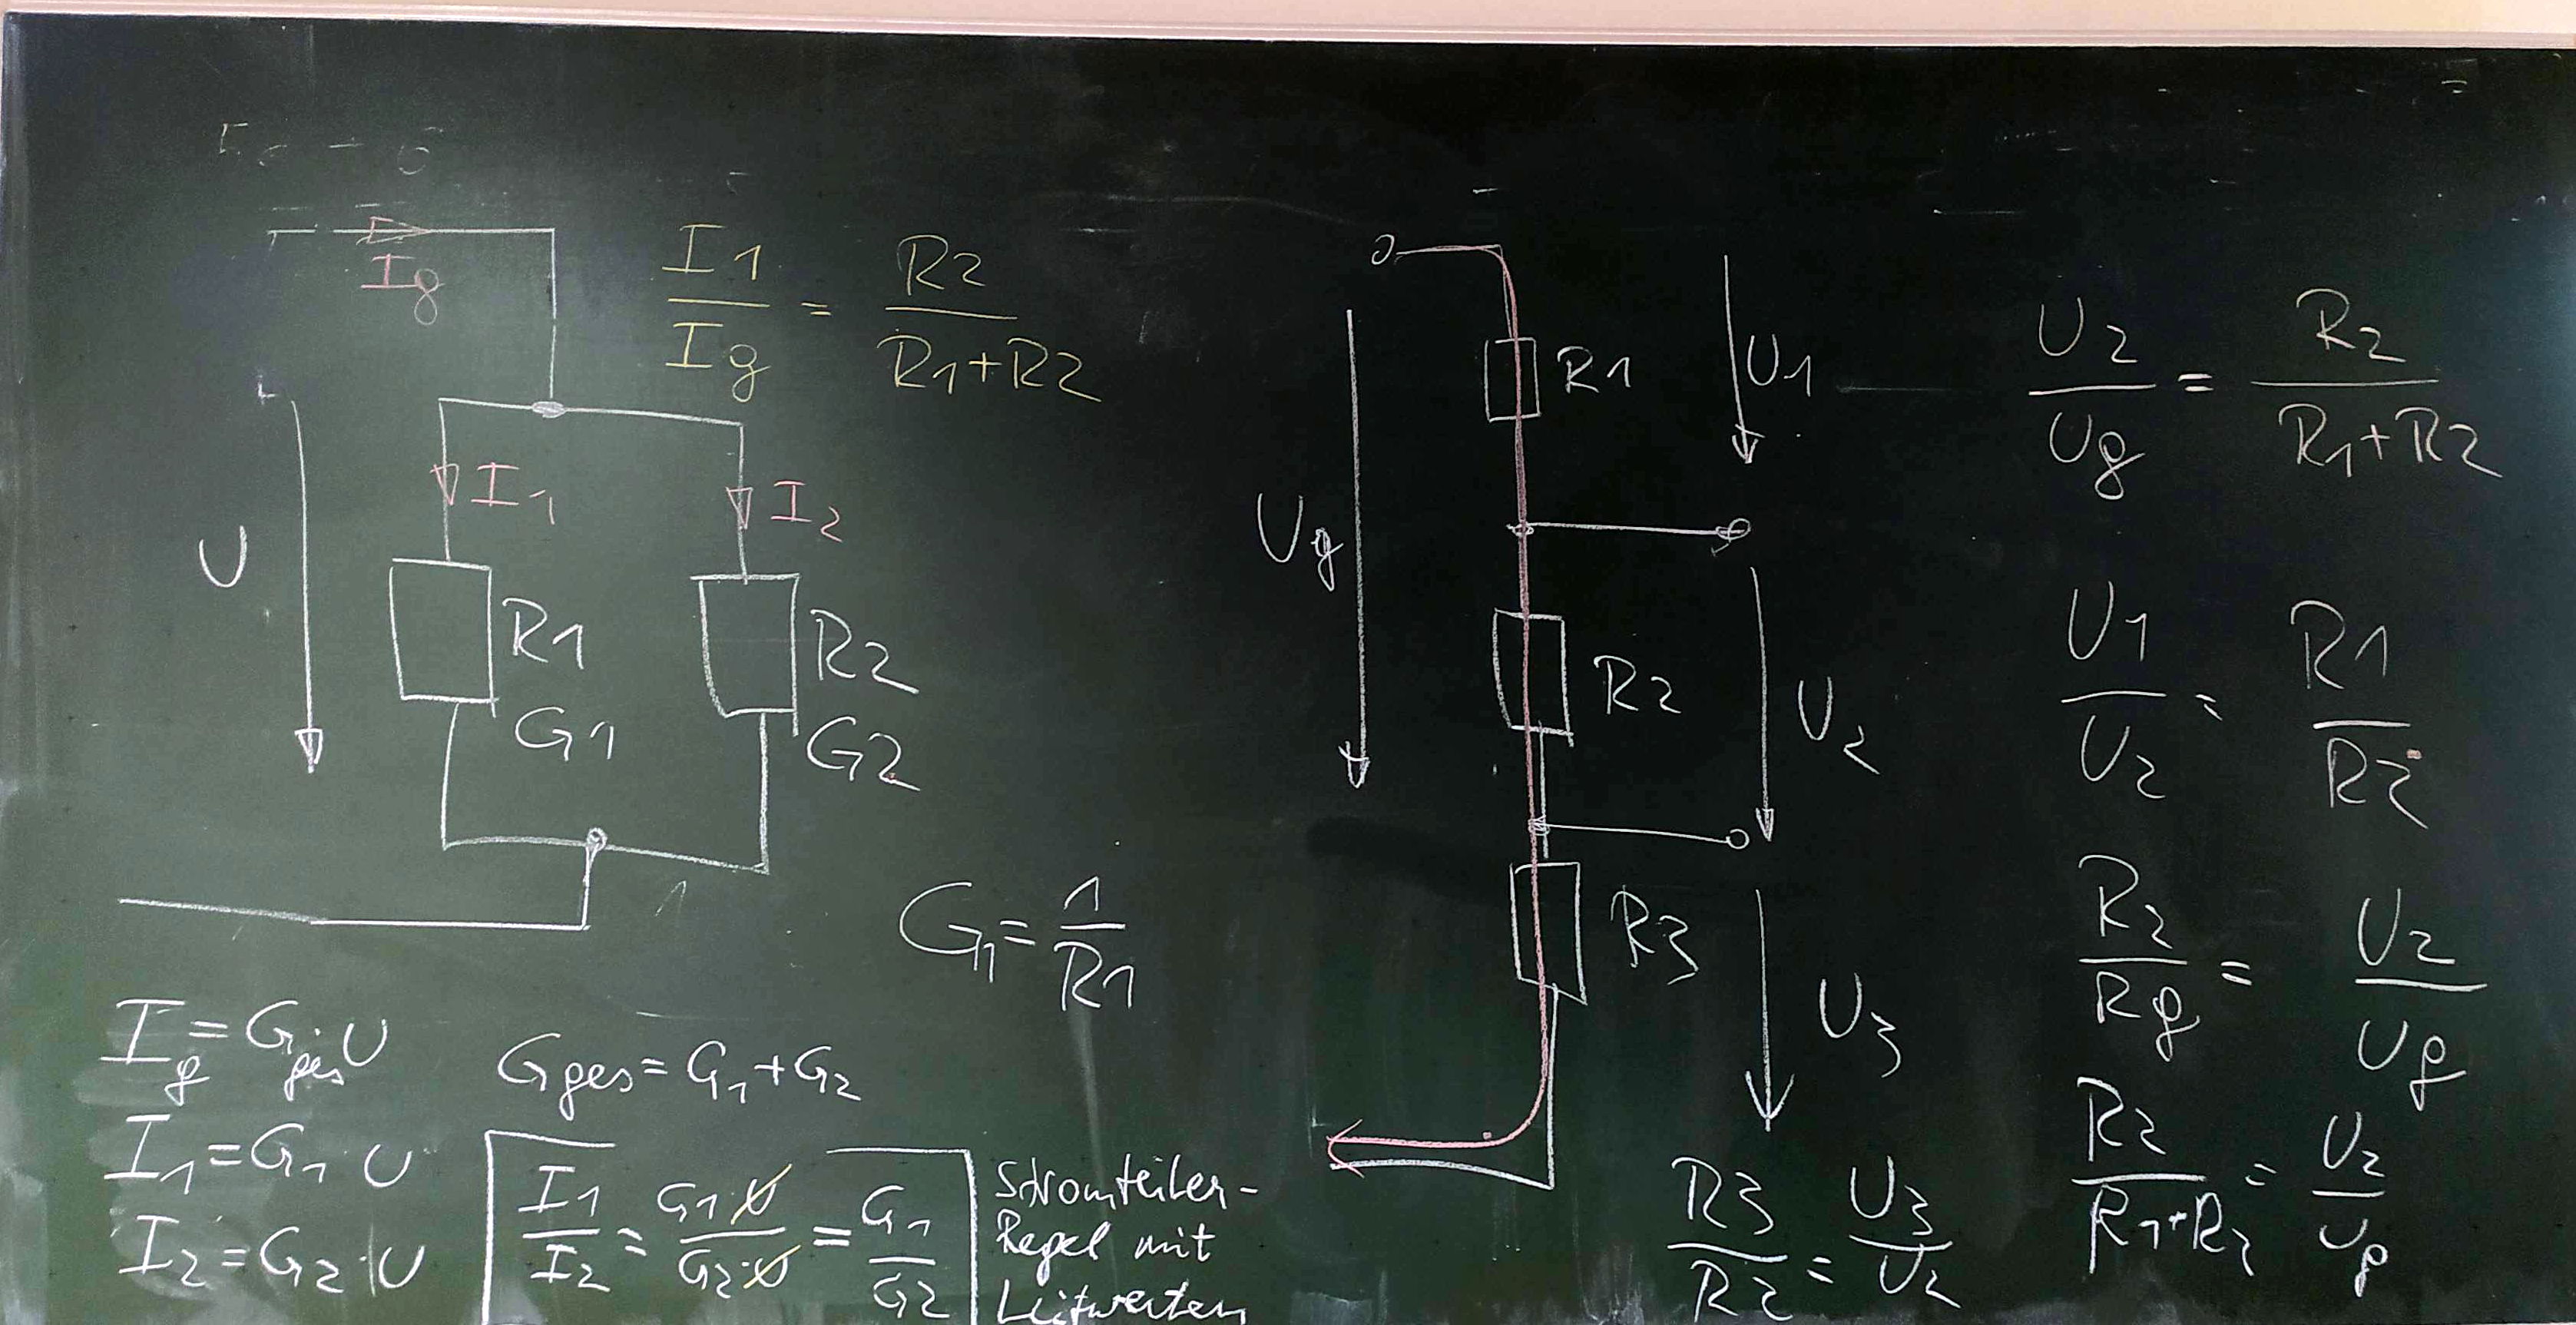 Ig
I1 / Ig = R2 / R1+R2
U
I1
I2
R1
G1
R2
G2
G1 = 1 / R1
Ig = Gges·U
Gges = G1+G2
I1 = G1·U
I2 = G2·U
I1 / I2 = G1·U / G2·U = G1 / G2
Stromteiler-
Regel mit
Leitwerten
Ug
R1
U1
R2
U2
R3
U3
R3 / R2 = U3 / U2
U2 / Ug = R2 / R1+R2
U1 / U2 = R1 / R2
R2 / Rg = U2 / Ug
R2 / R1+R2 = U2 / Ug